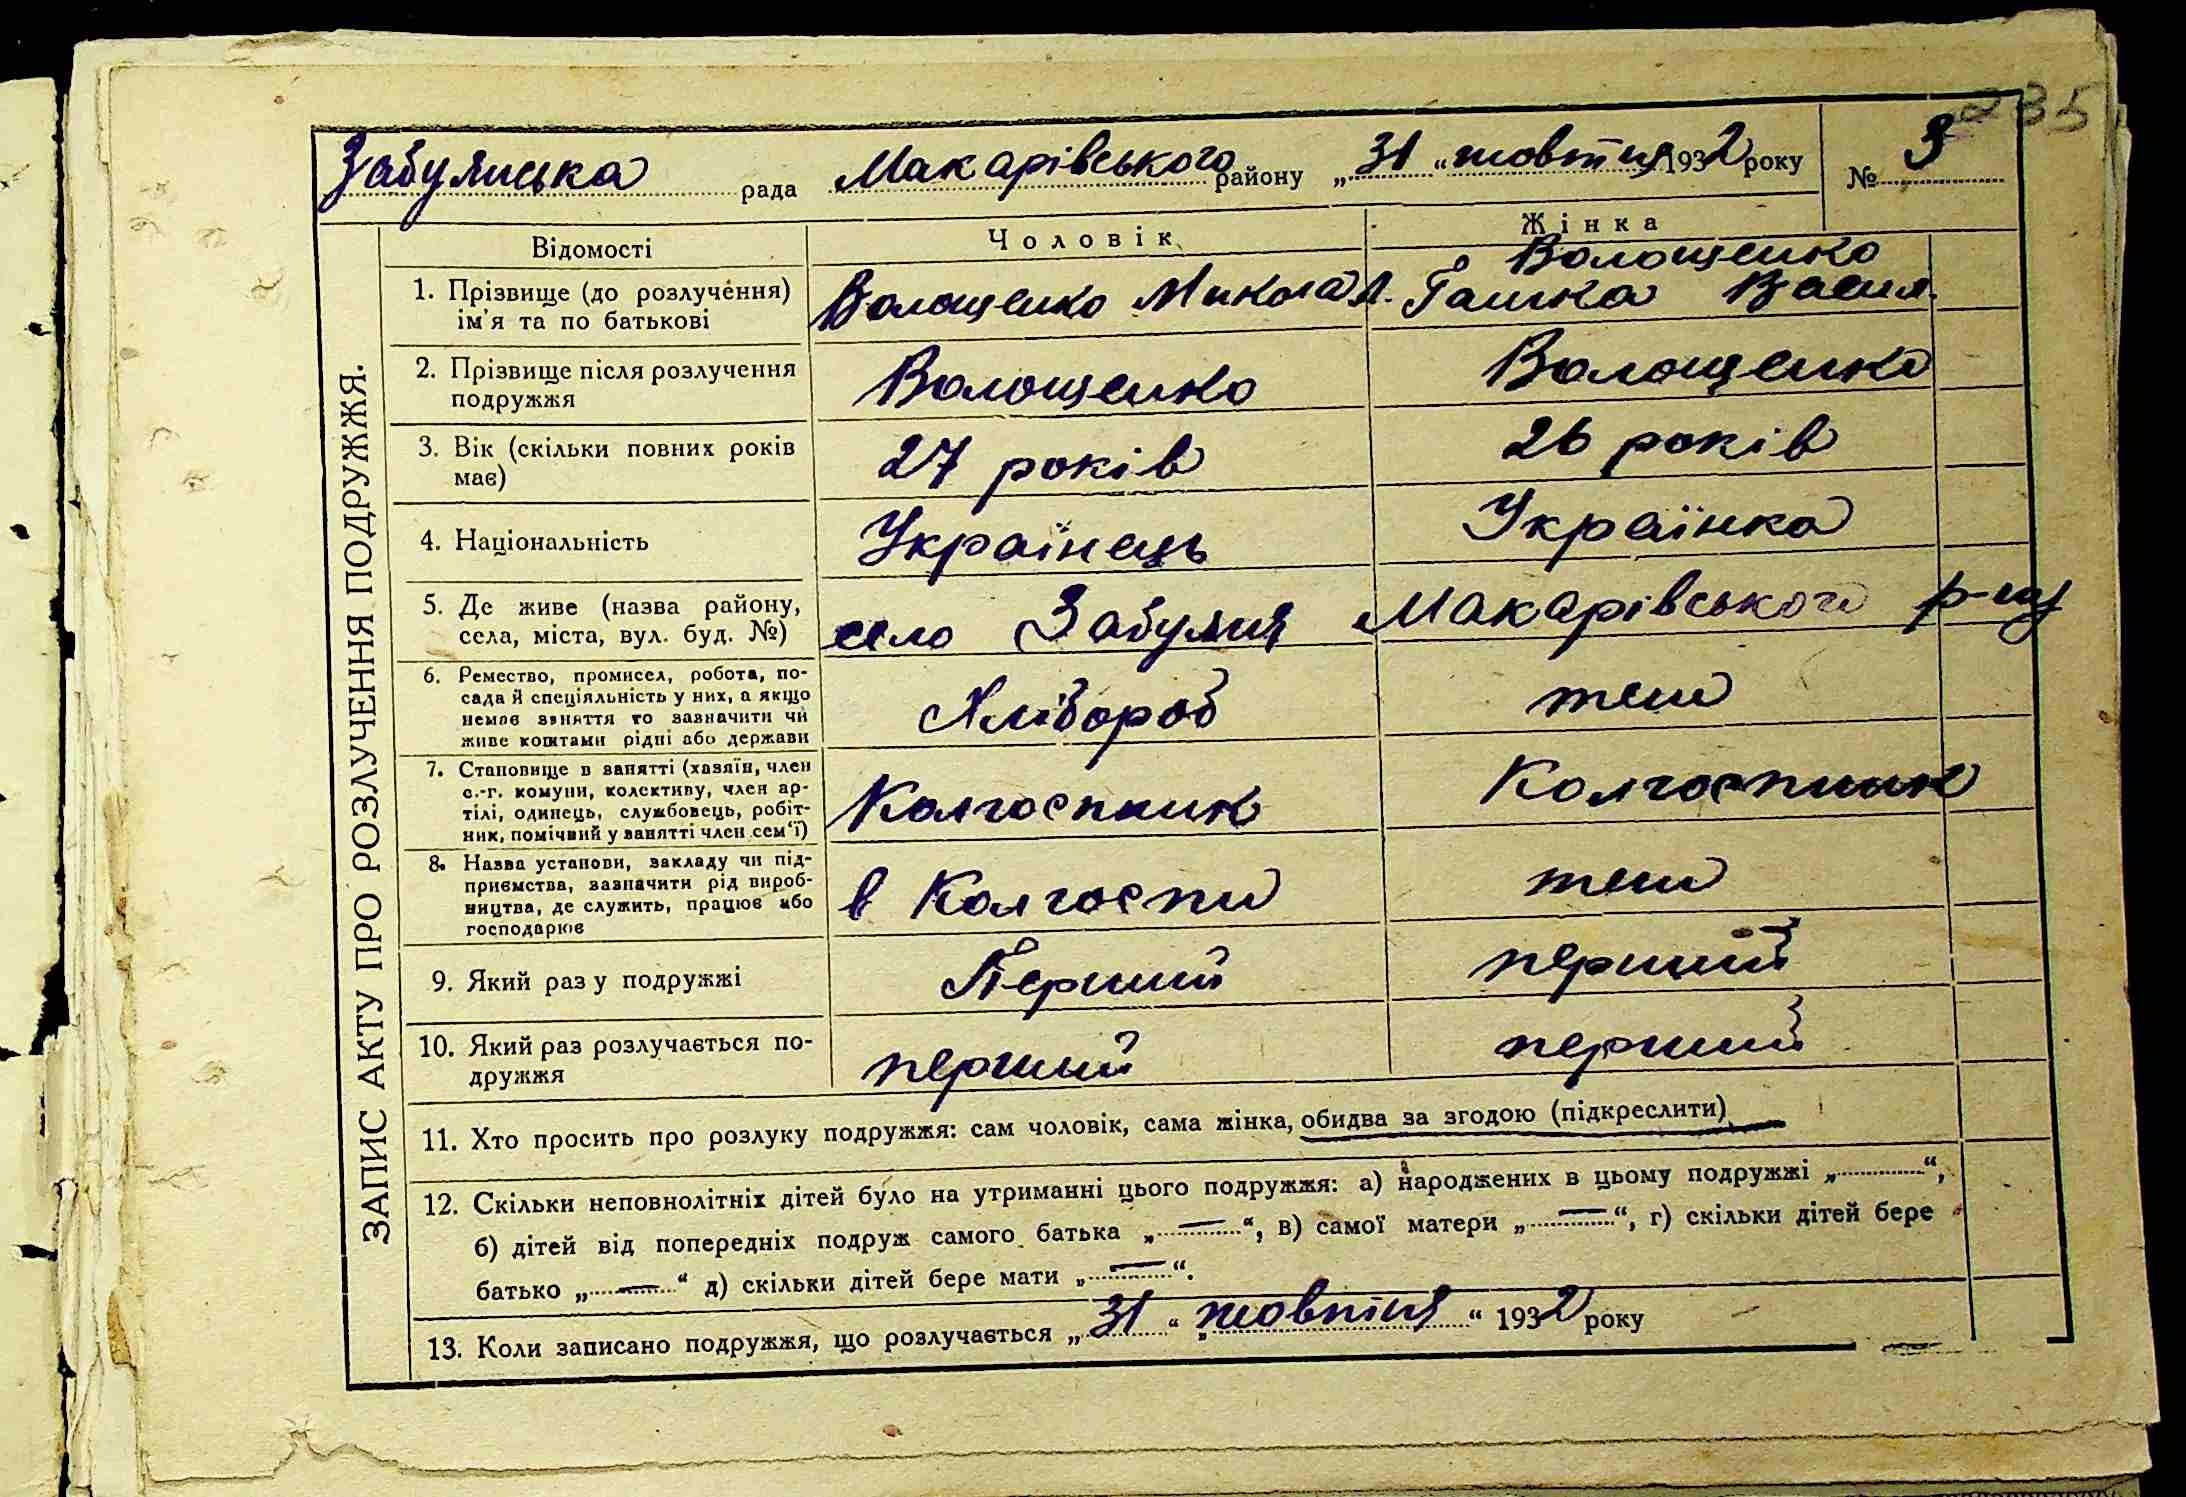 235
Забуянська рада Макарівського району „31“ жовтня 1932 року № 3
ЗАПИС АКТУ ПРО РОЗЛУЧЕННЯ ПОДРУЖЖЯ.
Відомості Чоловік Жінка
1. Прізвище (до розлучення)
ім'я та по батькові
Волощенко Микола Л.
Волощенко
Ганка Васил.
2. Прізвище після розлучення
подружжя
Волощенко Волощенко
3. Вік (скільки повних років
має)
27 років 26 років
4. Національність Українець Українка
5. Де живе (назва району,
села, міста, вул. буд. №)
село Забуяня Макарівського р-ну
6. Ремество, промисел, робота, по-
сада й спеціяльність у них, а якщо
немає заняття то зазначити чи
живе коштами рідні або держави
Хлібороб теш
7. Становище в занятті (хазяїн, член
с.-г. комуни, колективу, член ар-
тілі, одинець, службовець, робіт-
ник, помічний у занятті член сем'ї)
Колгоспник Колгоспник
8. Назва установи, закладу чи під-
приємства, зазначити рід вироб-
ництва, де служить, працює або
господарює
в Колгоспи теш
9. Який раз у подружжі Перший перший
10. Який раз розлучається по-
дружжя
перший перший
11. Хто просить про розлуку подружжя: сам чоловік, сама жінка, обидва за згодою (підкреслити)
12. Скільки неповнолітніх дітей було на утриманні цього подружжя: а) народжених в цьому подружжі „............“,
б) дітей від попередніх подруж самого батька „—“, в) самої матери „—“, г) скільки дітей бере
батько „—“ д) скільки дітей бере мати „—“.
13. Коли записано подружжя, що розлучається „31“ „жовтня“ 1932 року